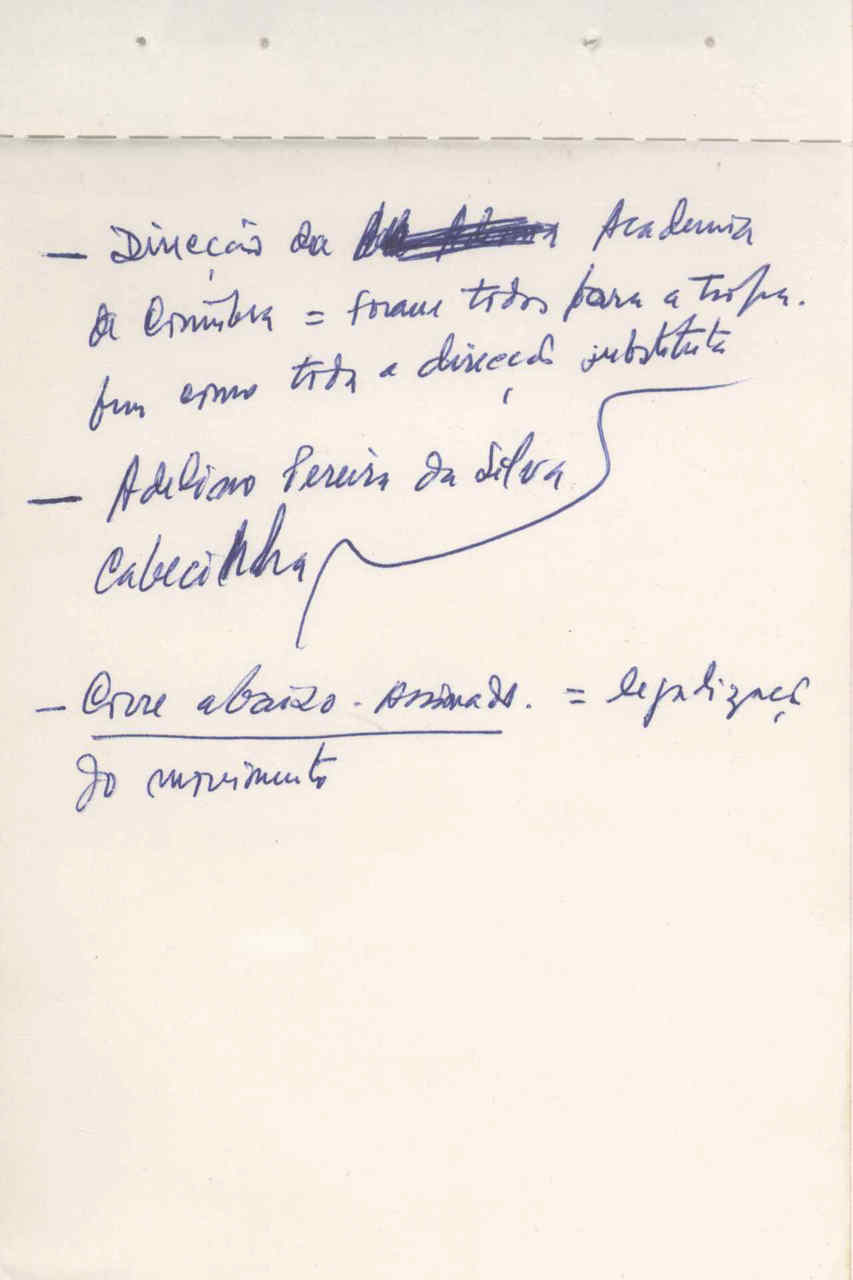 — Direcção da Academia
de Coimbra = foram todos para a tropa.
bem como toda a direcção substituta
— Adelino Pereira da Silva
Cabecinha
— Corre abaixo-assinado. = legalização
do movimento